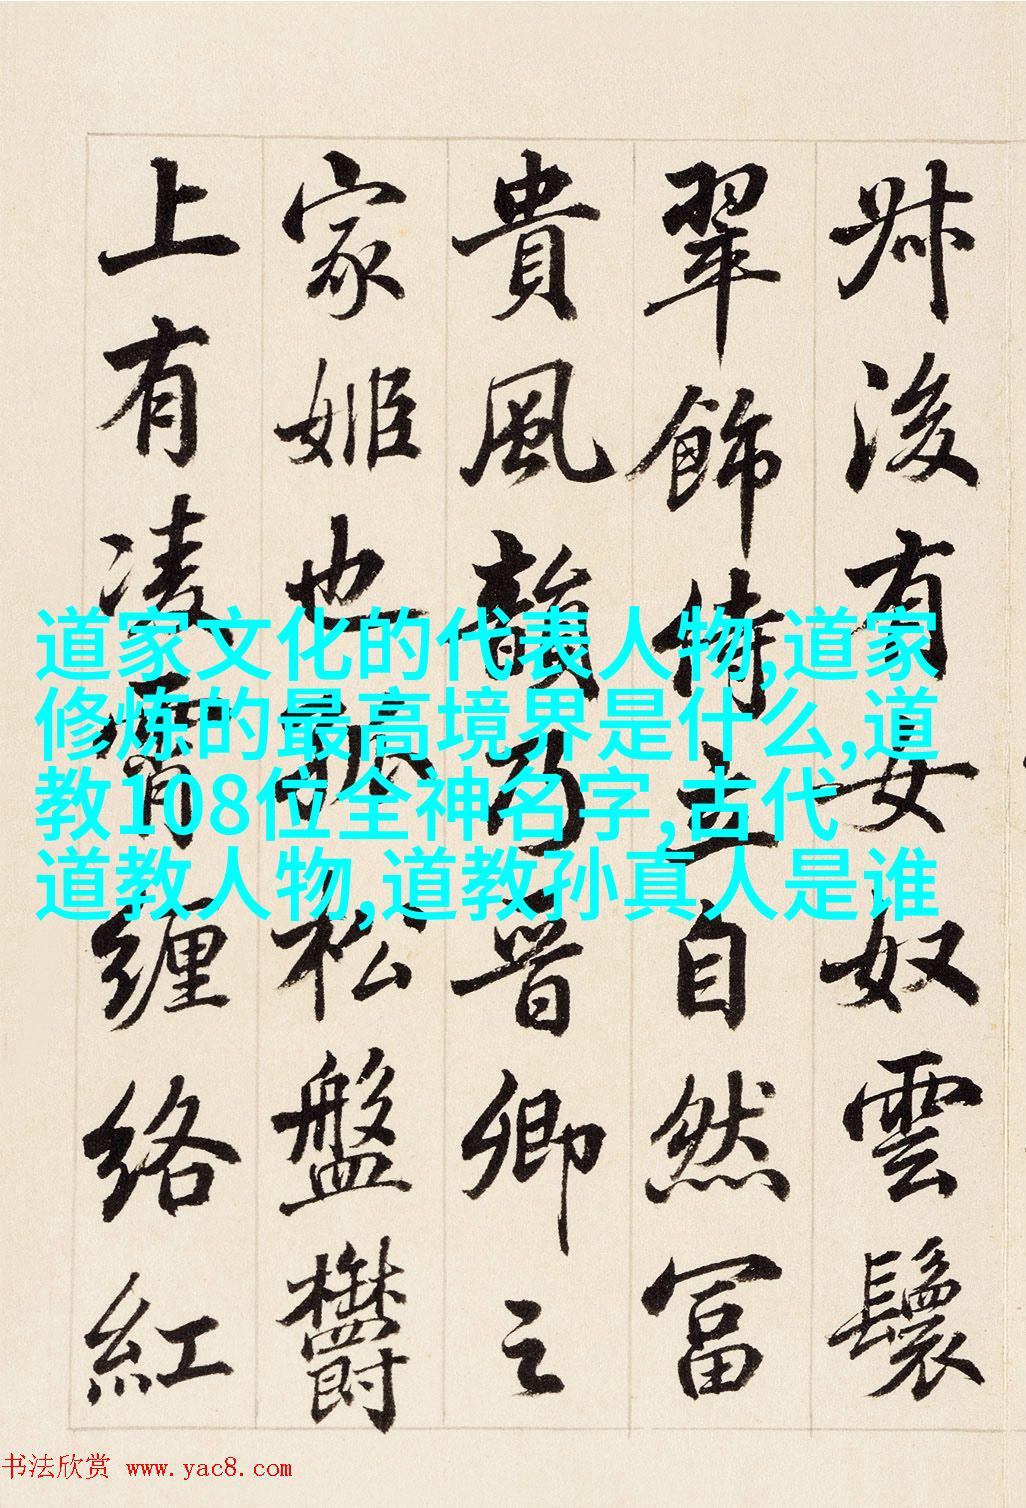 牀後有女奴雲鬟
翠飾侍立自然富
貴風韻乃晉卿之
家姬也孤松盤鬱
上有凌霄纏絡紅
道家文化的代表人物,道家
修炼的最高境界是什么,道
教108位全神名字,古代
道教人物,道教孙真人是谁
书法欣赏 www.yac8.com